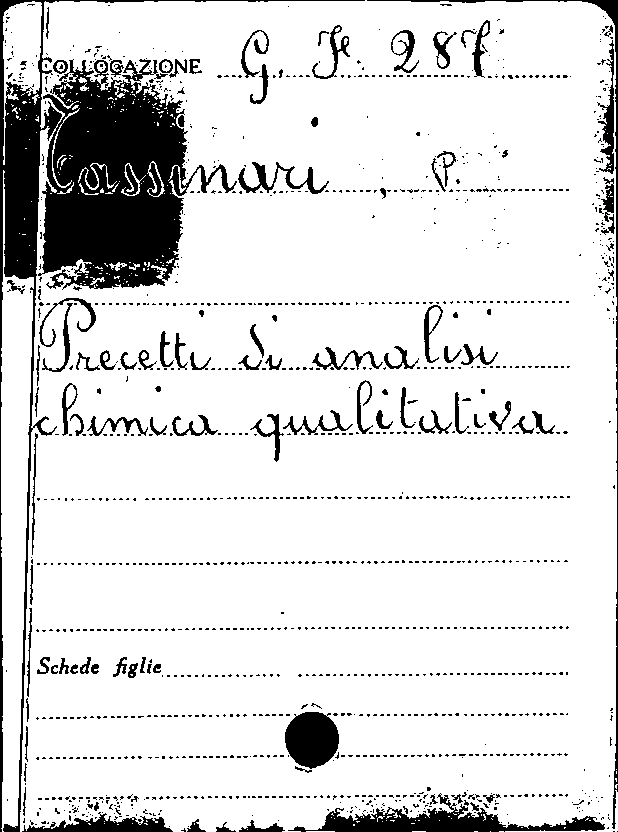 COLLOCAZIONE G. F. 287
Tassinari, P.
Precetti di analisi
chimica qualitativa
Schede figlie